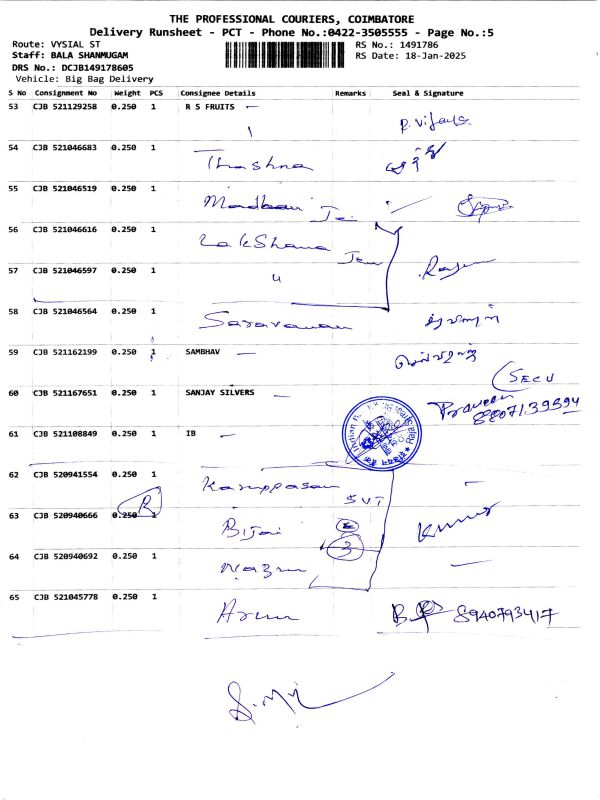 THE PROFESSIONAL COURIERS, COIMBATORE
Delivery Runsheet - PCT - Phone No.:0422-3505555 - Page No.:5
Route: VYSIAL ST
RS No.: 1491786
Staff: BALA SHANMUGAM
RS Date: 18-Jan-2025
DRS No.: DCJB149178605
Vehicle: Big Bag Delivery
S No Consignment No Weight PCS Consignee Details Remarks Seal & Signature
53 CJB 521129258 0.250 1 R S FRUITS R. Vijaya
54 CJB 521046683 0.250 1 Thashna
55 CJB 521046519 0.250 1
56 CJB 521046616 0.250 1 LakShana
57 CJB 521046597 0.250 1 "
58 CJB 521046564 0.250 1 Saravanan
59 CJB 521162199 0.250 1 SAMBHAV
60 CJB 521167651 0.250 1 SANJAY SILVERS Praveen
61 CJB 521108849 0.250 1 IB
62 CJB 520941554 0.250 1 Karuppasam SVT
R
63 CJB 520940666 0.250 1 Bijai Kumar
3
64 CJB 520940692 0.250 1
65 CJB 521045778 0.250 1 Arun 8940793417